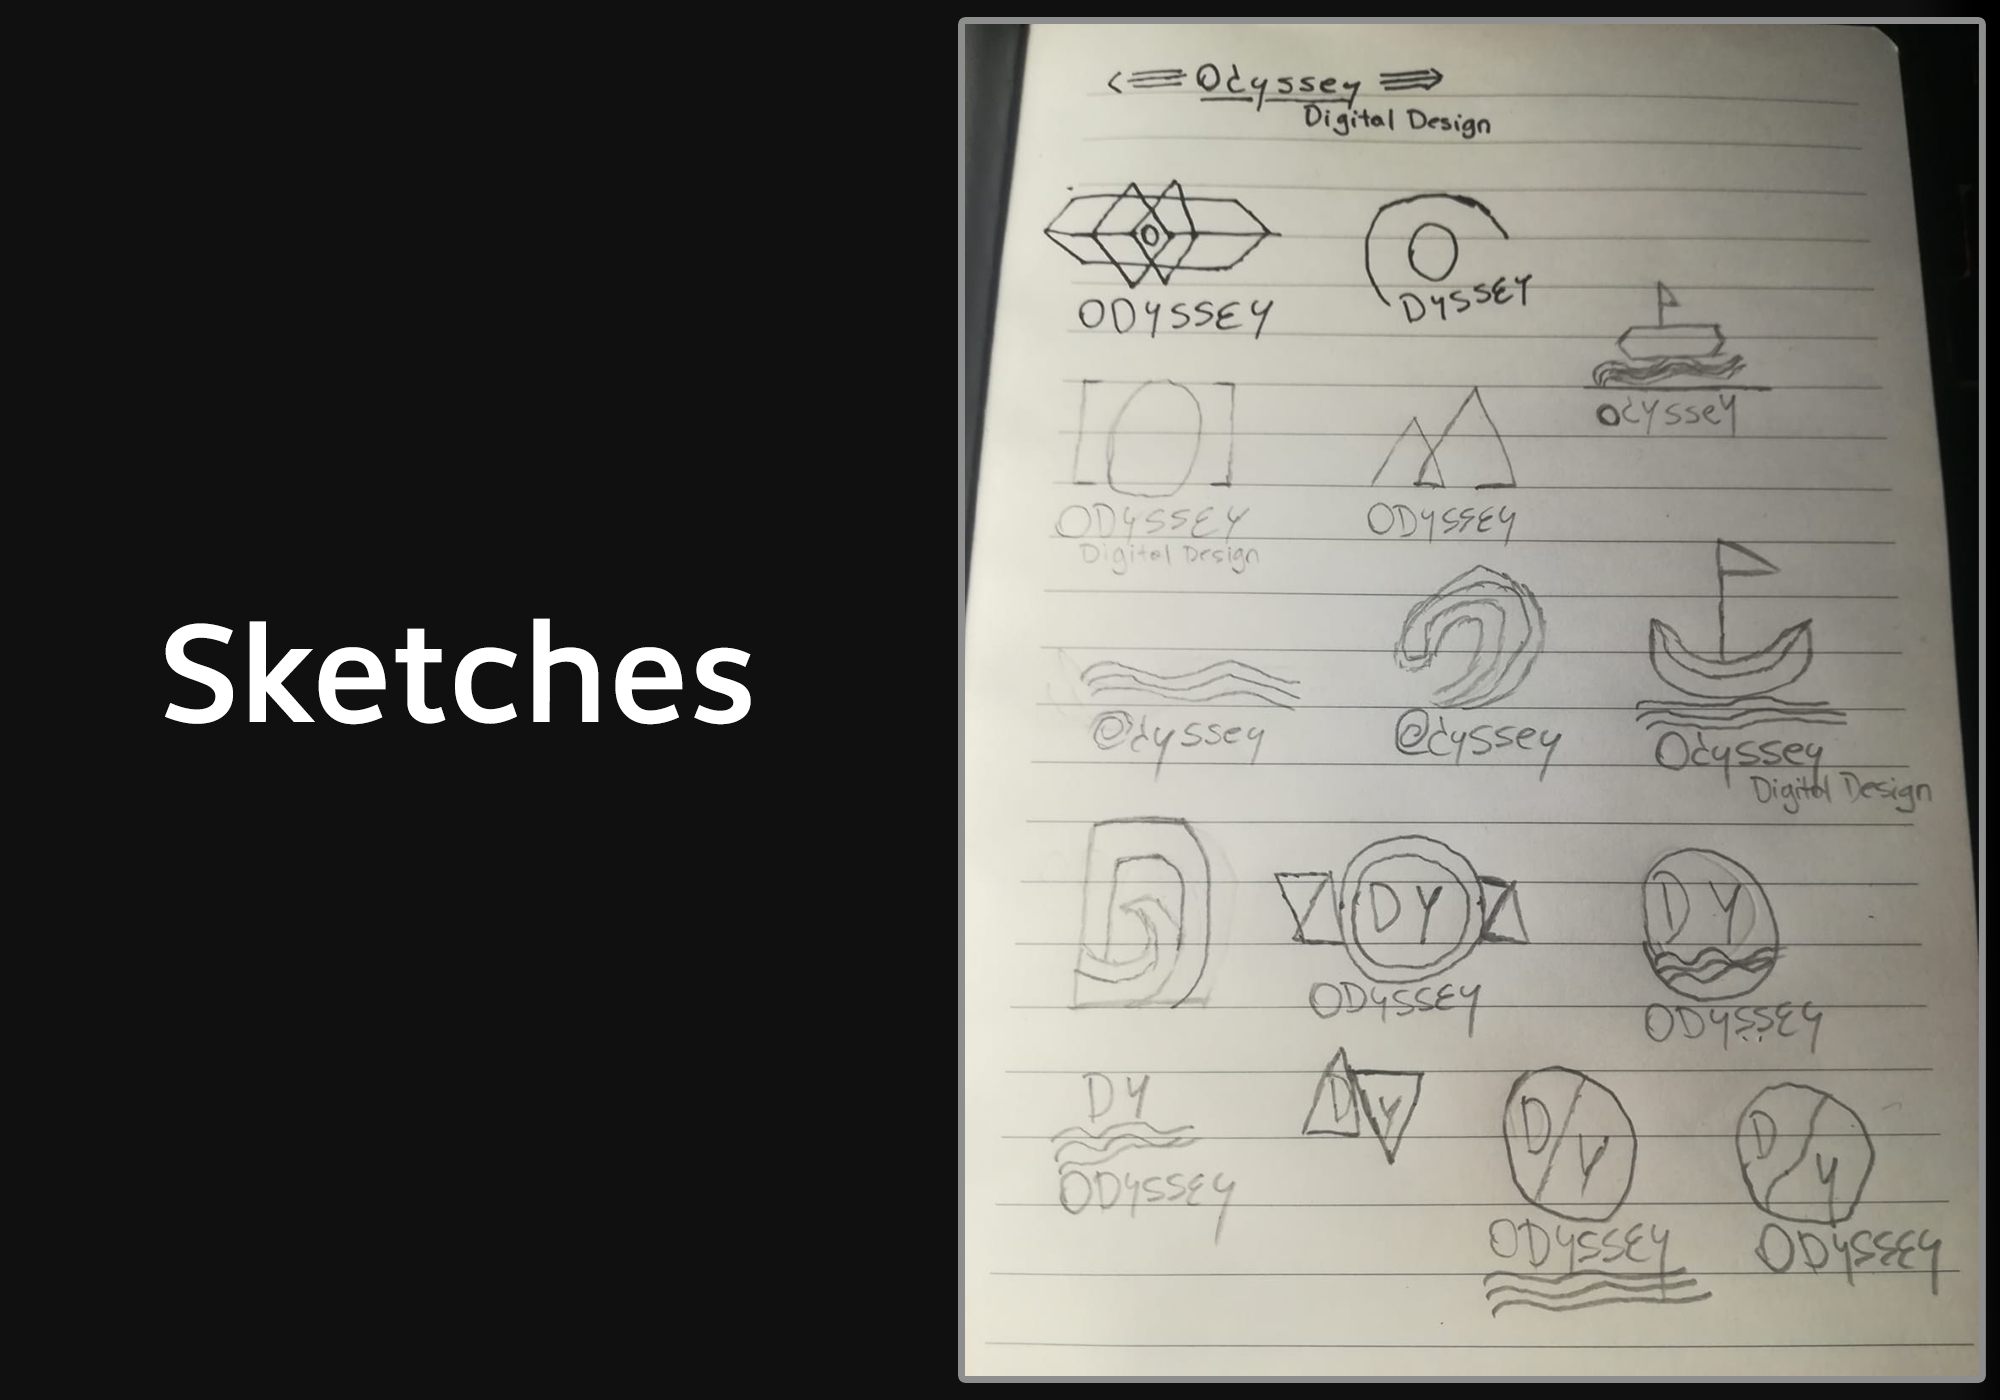 Sketches
Odyssey
Digital Design
O
ODYSSEY
O
DYSSEY
Odyssey
O
ODYSSEY
Digital Design
ODYSSEY
Odyssey
Odyssey
Odyssey
Digital Design
D
DY
ODYSSEY
DY
ODYSSEY
DY
ODYSSEY
D Y
D/Y
ODYSSEY
D/Y
ODYSSEY